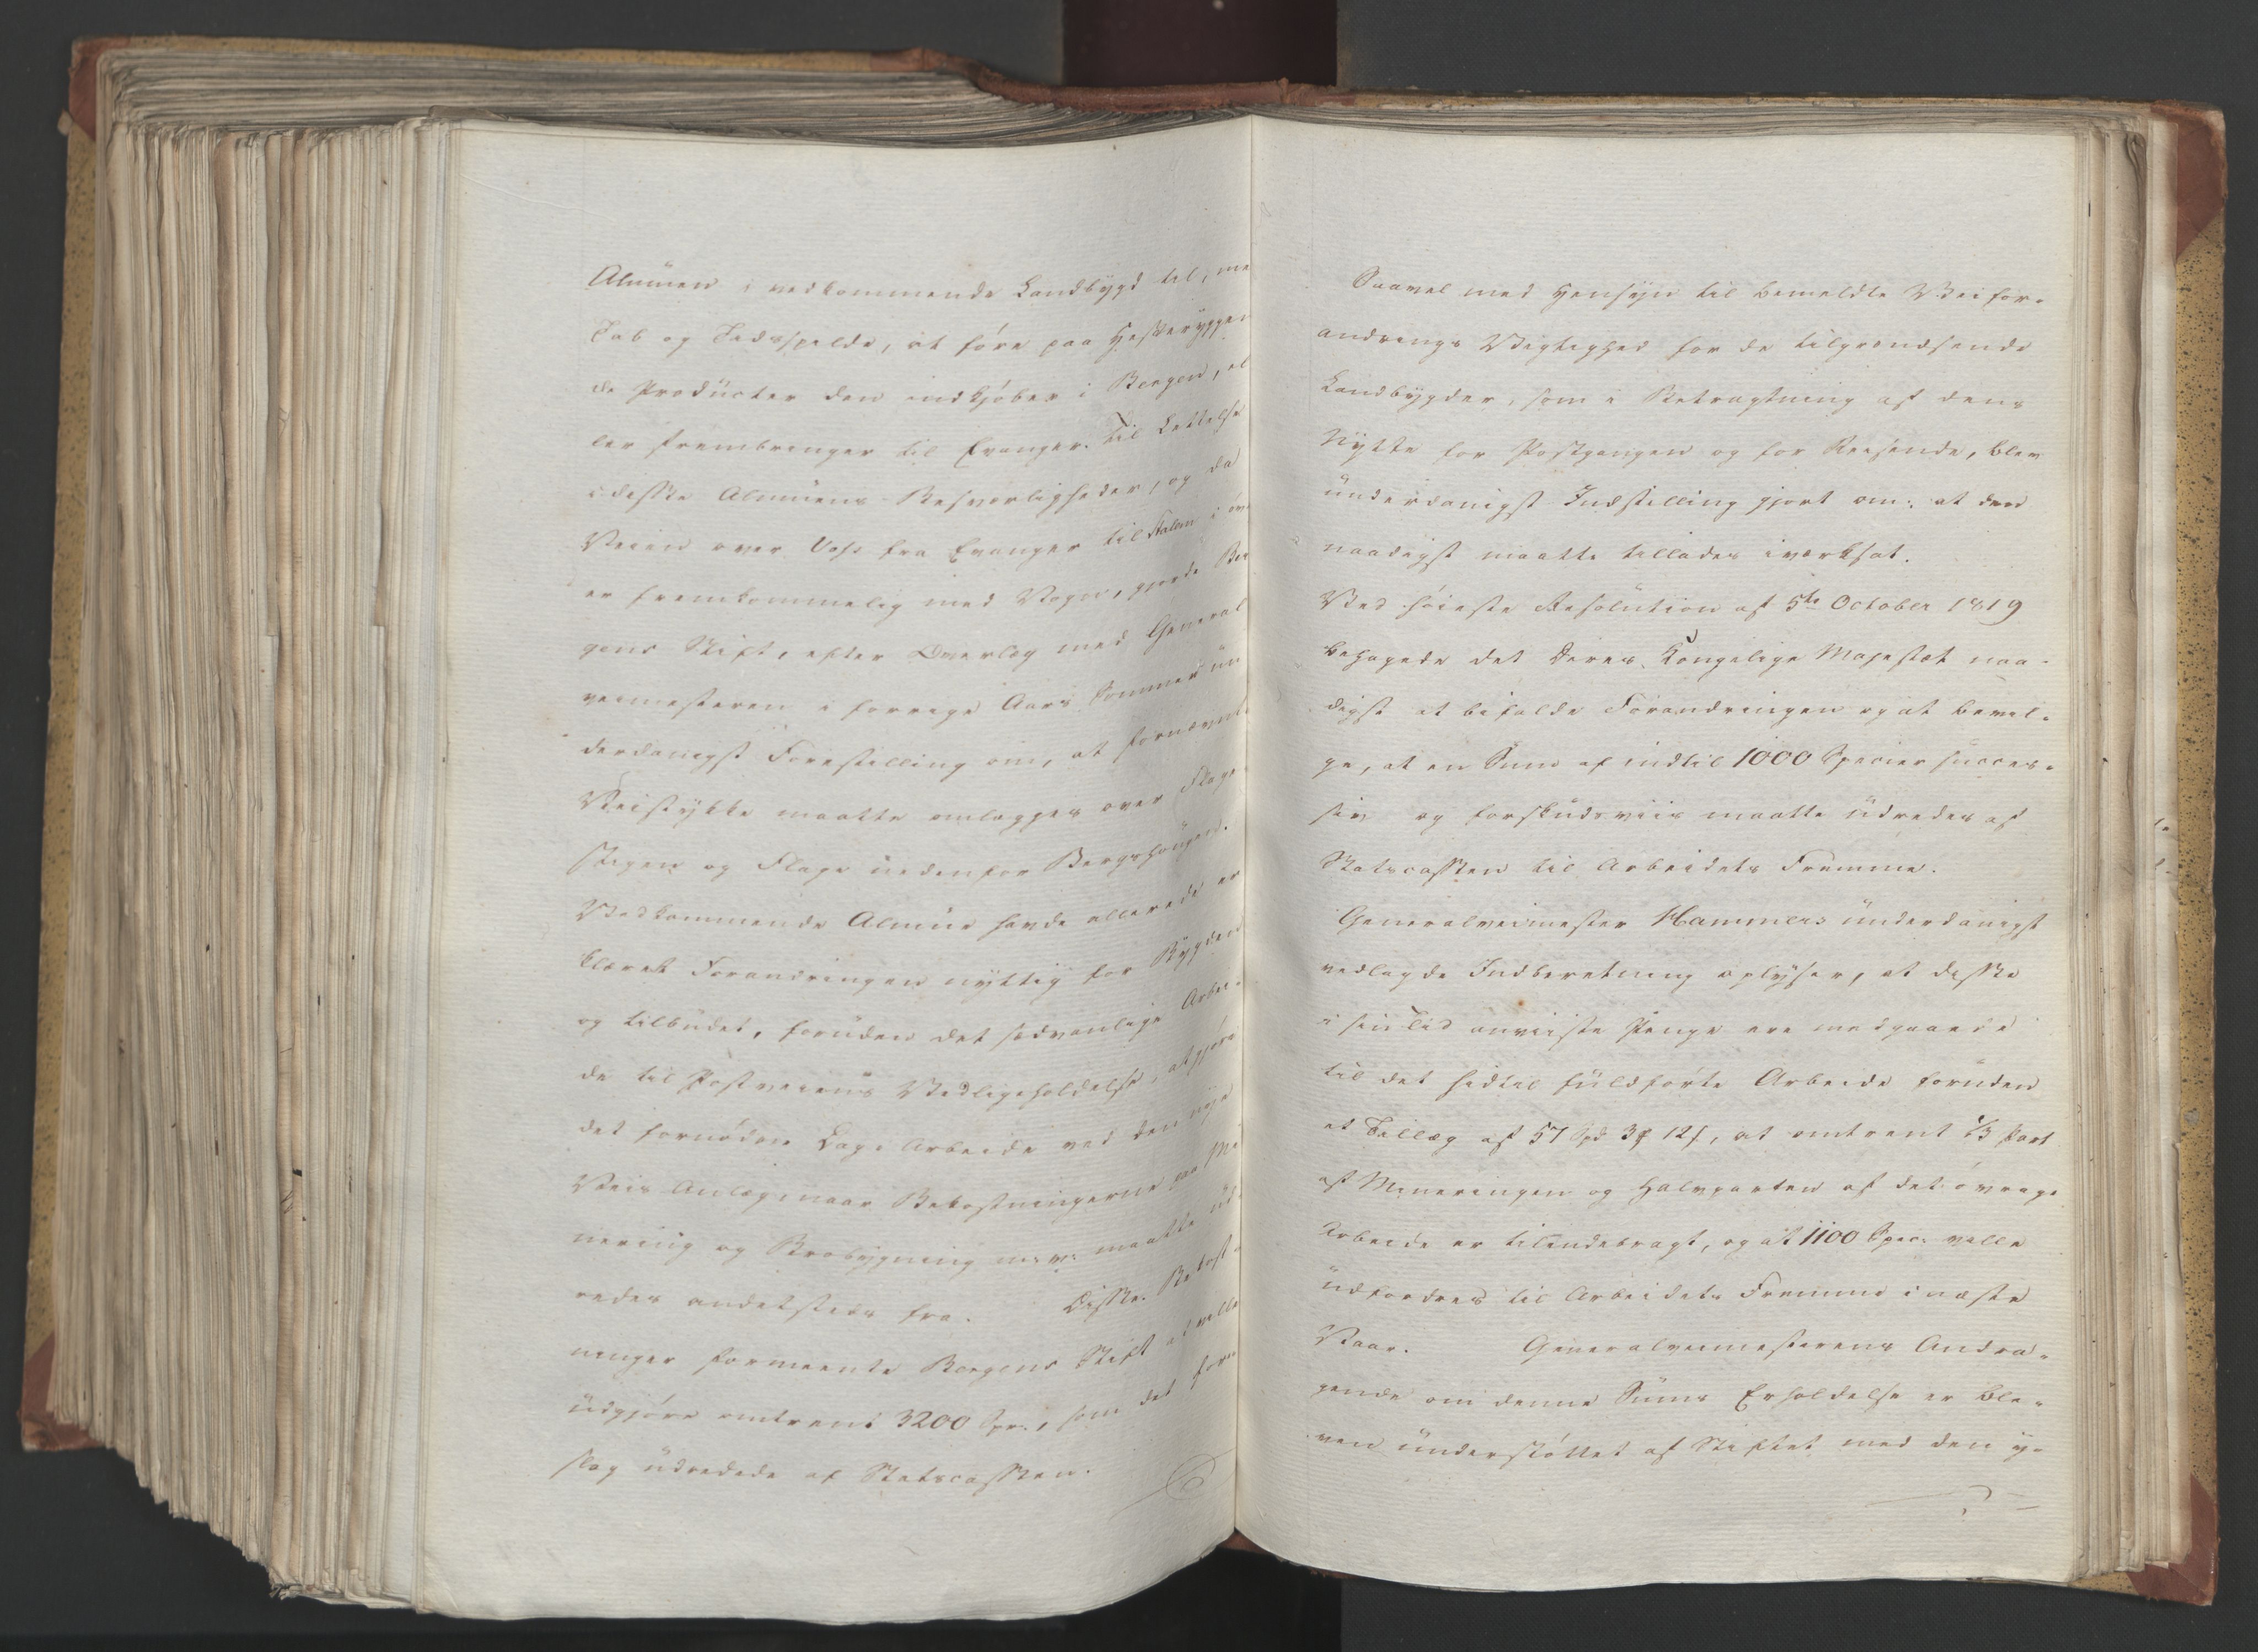 Almuen i vedkommende Landbygd til, me
Tab og Tidsspilde, at føre paa Hesteryggen
de Producter den indkjøber i Bergen, el
ler frembringer til Evanger. Til Lettelse
i disse Almuens Besværligheder, og da
Veien over Voss fra Evanger til Stalem i øv
er fremkommelig med Vogn, gjorde Ber
gens Stift, efter Overlæg med General
veimesteren i forrige Aars Sommer un
derdanigst Forestilling om, at fornævnte
Veistykke maatte omlægges over Flage
stigen og Flage nedenfor Bergshougen.
Vedkommende Almue havde allerede er
klæret Forandringen nyttig for Bygden
og tilbudet, foruden det sædvanlige Arbei-
de til Postveiens Vedligeholdelse, at gjøre
det fornødne Lage Arbeide ved den nye
Veis Anlæg naar Bekostningerne paa Mi
nering og Brobygning m: v: maatte ud
redes andetsteds fra. Disse Bekost-
ninger formeente Bergens Stift at ville
udgjøre omtrent 3200 Spr:, som det fore
slog udredede af Statscassen.
Saavel med Hensyn til bemeldte Veifor-
andrings Vigtighed for de tilgrændsende
Landbygder, som i Betragtning af dens
Nytte for Postgangen og for Reisende, blev
underdanigst Indstilling gjort om: at den
naadigst maatte tillades iværksat.
Ved høieste Resolution af 5te October 1819
behagede det Deres Kongelige Majestæt naa-
digst at bifalde Forandringen og at bevil-
ge, at en Sum af indtil 1000 Species succes-
siv og forskudsviis maatte udredes af
Statscassen til Arbeidets Fremme.
Generalveimester Hammers underdanigst
vedlagde Indberetning oplyser, at disse
i sin Tid anviiste Penge ere medgaaede
til det hidtil fuldførte Arbeide foruden
et Tillæg af 57 Spd 3 ß 12 s, at omtrent 2/3 Part
af Mineringen og Halvparten af det øvrige
Arbeide er tilendebragt, og at 1100 Spec: ville
udfordres til Arbeidets Fremme i næste
Vaar. Generalveimesterens Andra-
gende om denne Sums Erholdelse er ble-
ven understøttet af Stiftet med den y-